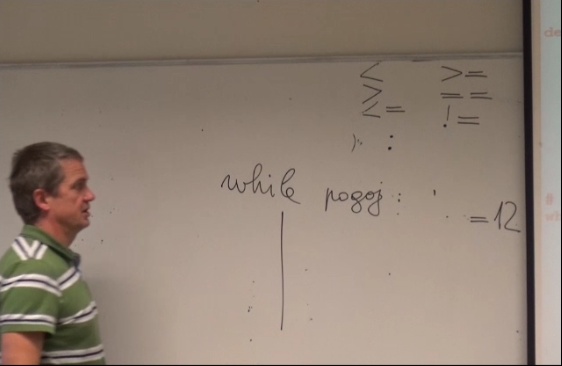 < >=
> ==
<= !=
:
while pogoj:
=12
de
#
wh